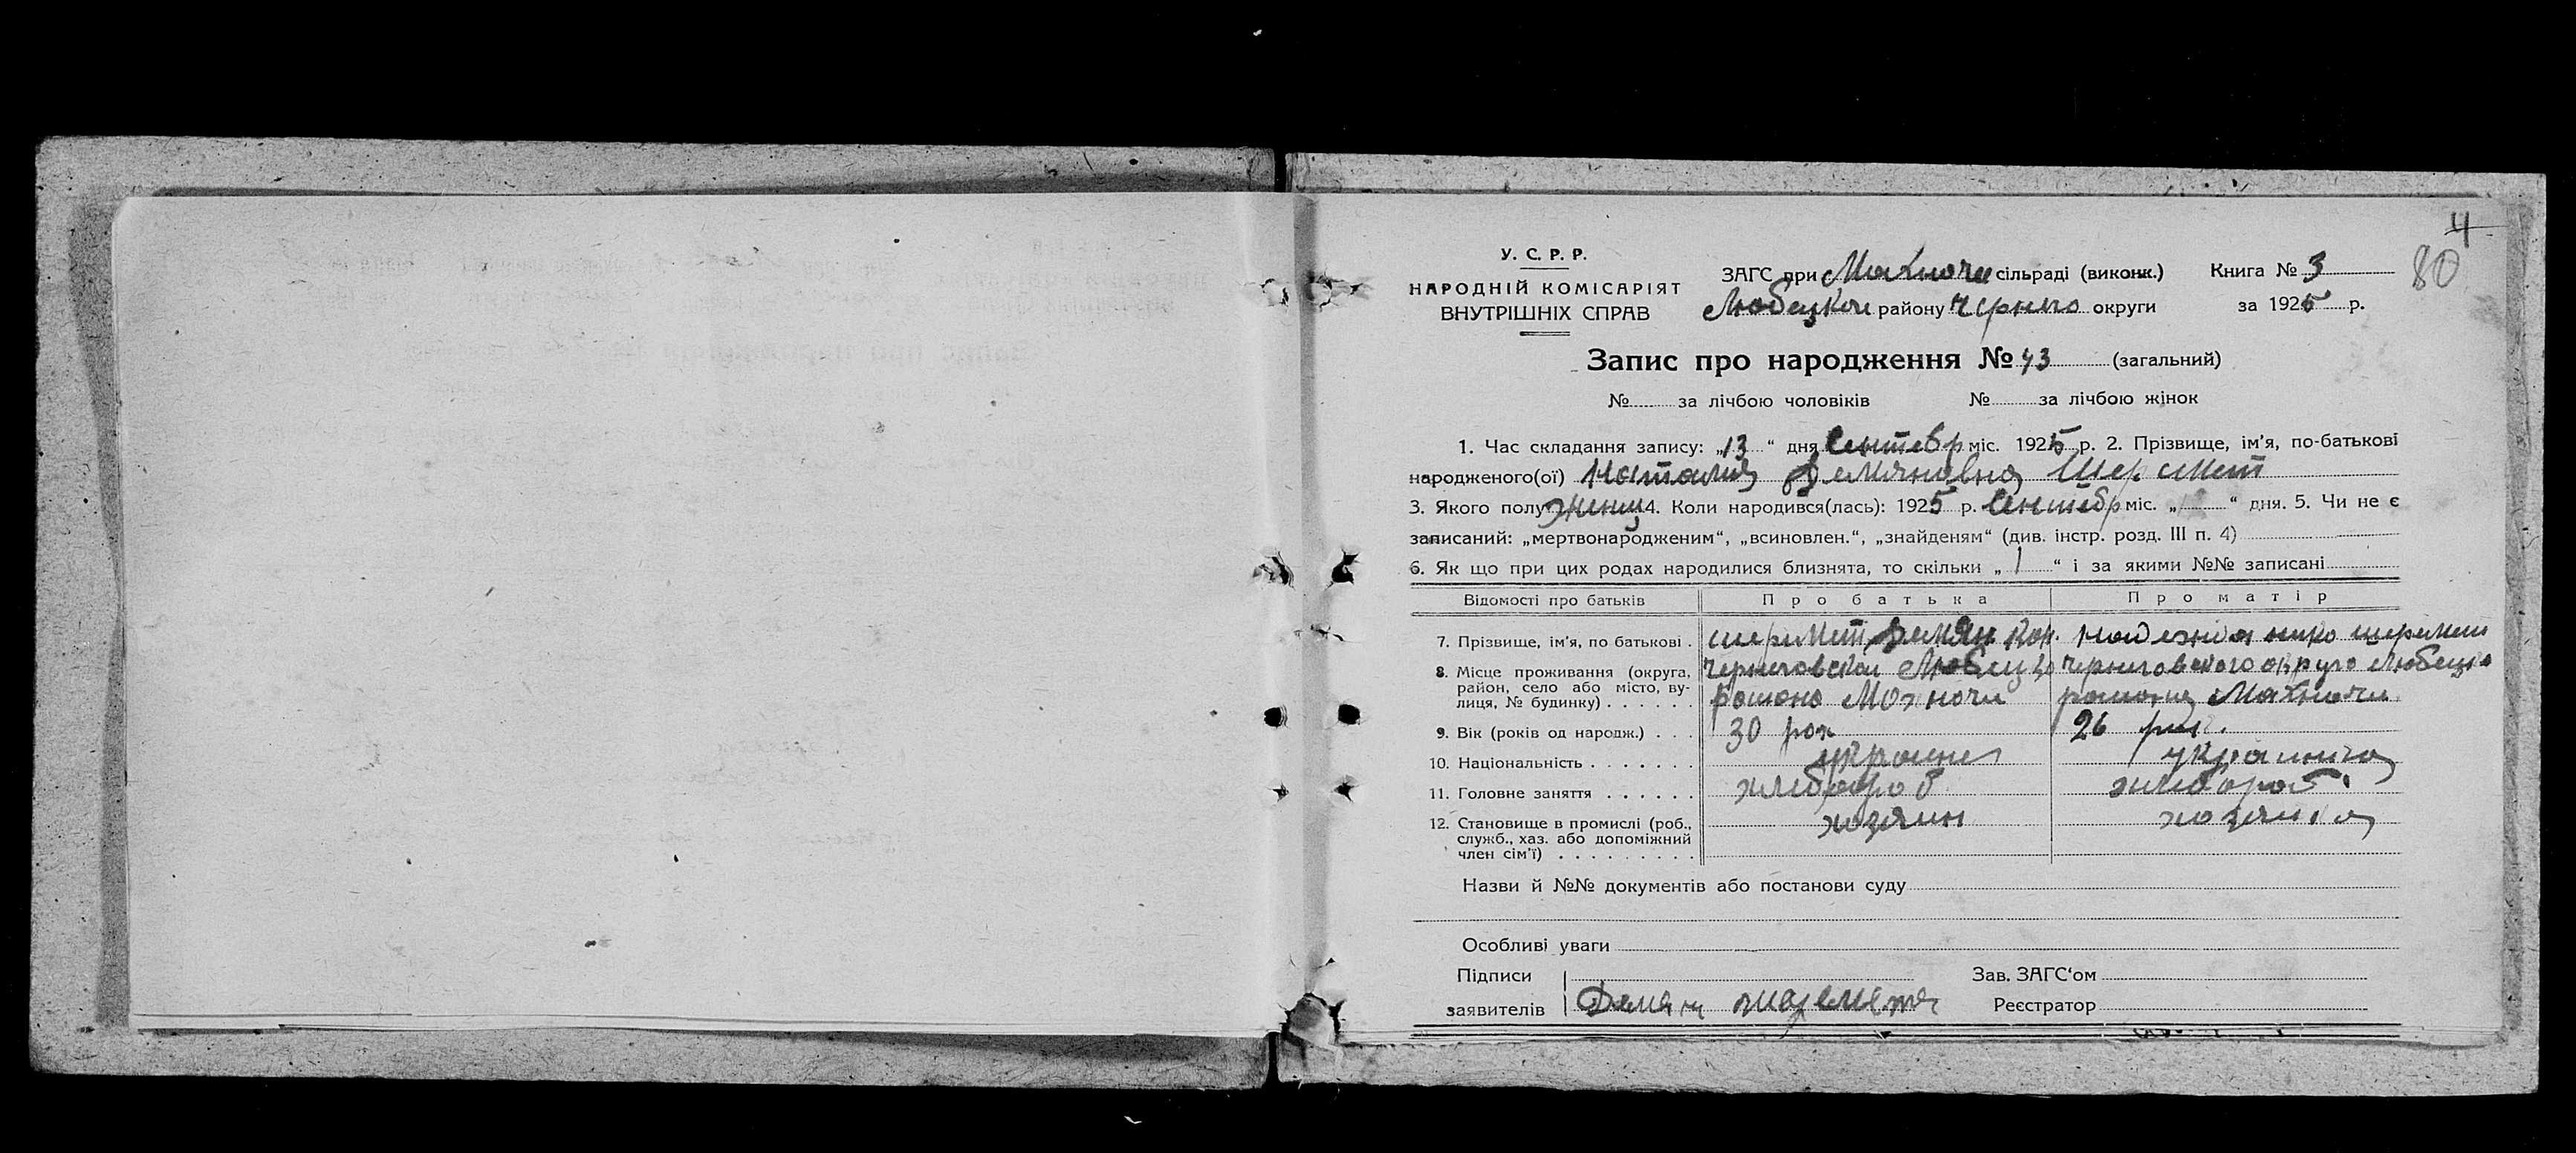 4
80
У. С. Р. Р.
НАРОДНІЙ КОМІСАРІЯТ
ВНУТРІШНІХ СПРАВ
ЗАГС при Махначи сільраді (виконк.) Книга № 3
Любецкои району Черниго округи за 1925 р.
Запис про народження № 43 (загальний)
№ за лічбою чоловіків № за лічбою жінок
1. Час складання запису: „13“ дня Сентебр міс. 1925 р. 2. Прізвище, ім'я, по-батькові
народженого(ої) Наталия Демяновна Шеремет
3. Якого полу женщ 4. Коли народився(лась): 1925 р. Сентебр міс. „ “ дня. 5. Чи не є
записаний: „мертвонародженим“, „всиновлен.“, „знайденям“ (див. інстр. розд. III п. 4)
6. Як що при цих родах народилися близнята, то скільки „1“ і за якими №№ записані
Відомості про батьків Про батька Про матір
7. Прізвище, ім'я, по батькові . Шеремет Демян Кор. шеремет
8. Місце проживання (округа, район, село або місто, вулиця, № будинку) . . . . . . Черниговскои Любецко Черниговского округо Любецко
району Махначи району Махначи
9. Вік (років од народж.) . . . 30 рок 26 рок.
10. Національність . . . . . . . украинец украинка
11. Головне заняття . . . . . . хлебороб хлебороб.
12. Становище в промислі (роб., служб., хаз. або допоміжний член сім'ї) . . . . . . . . . хозяин хозяика
Назви й №№ документів або постанови суду
Особливі уваги
Підписи Зав. ЗАГС'ом
заявителів Демян шеремета Реєстратор